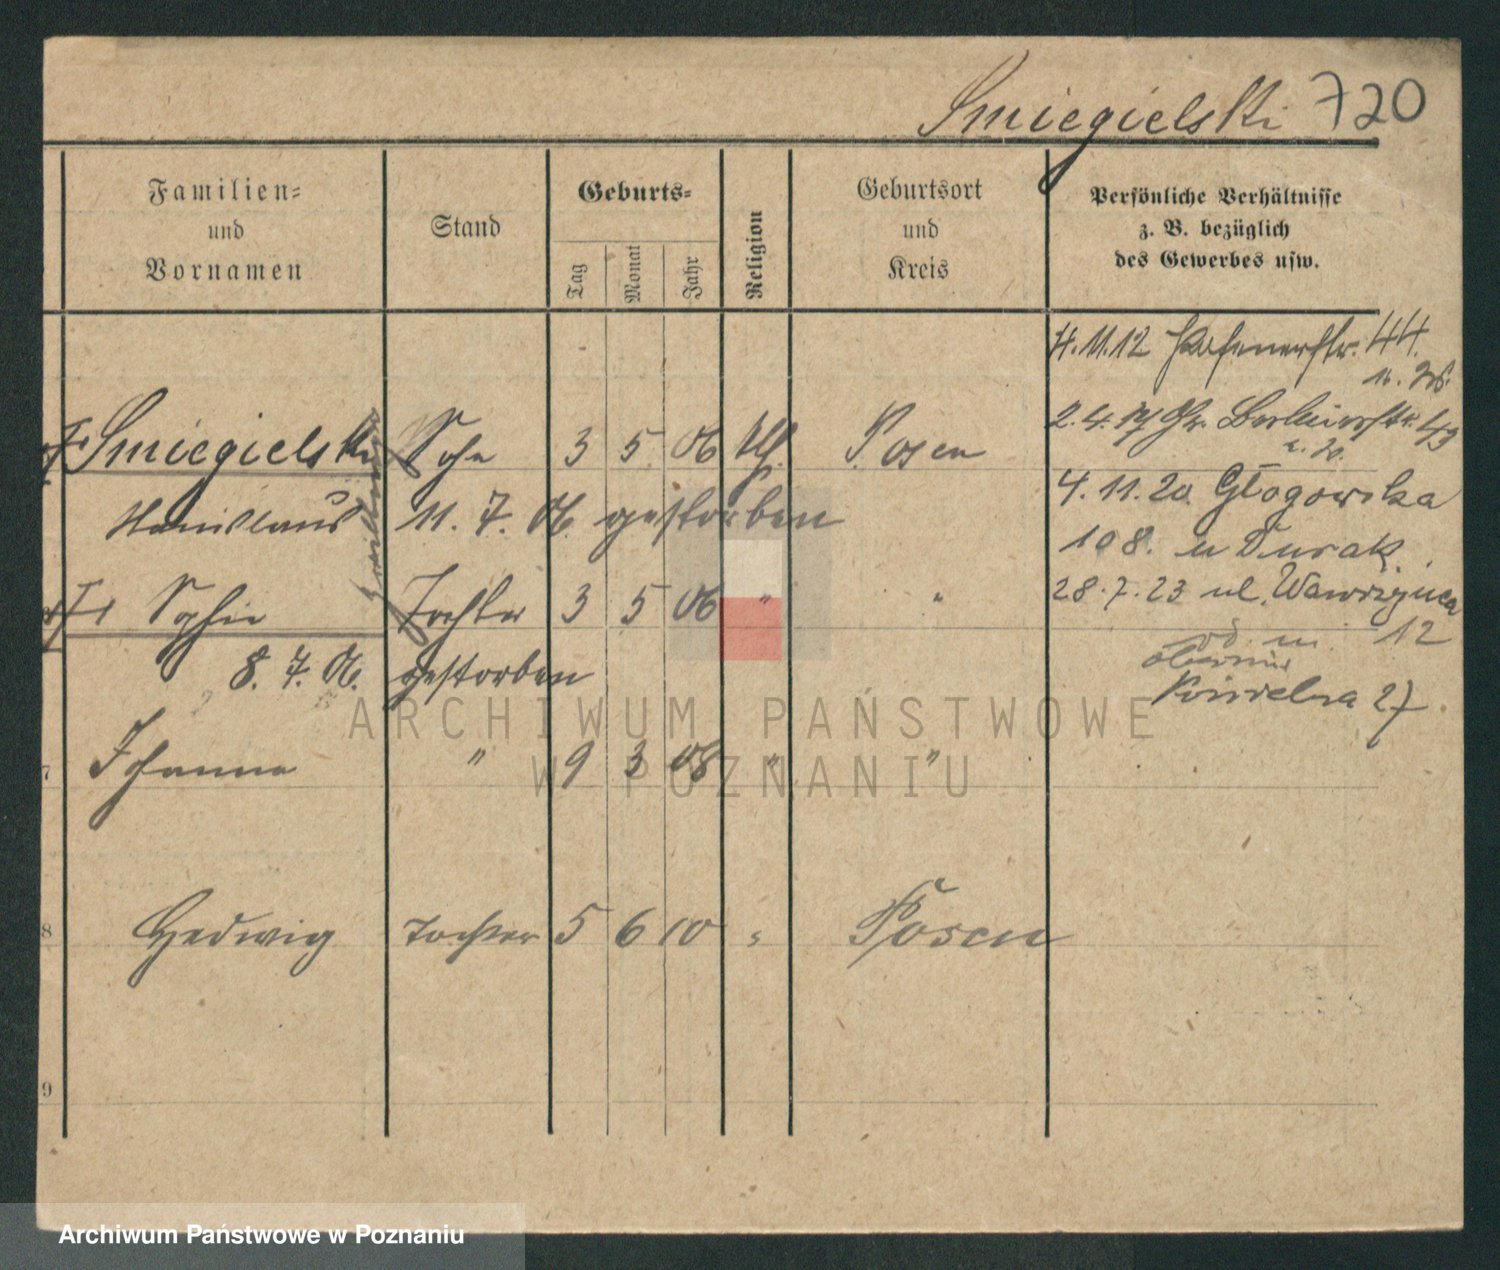 Smiegielski 720
Familien=
und
Vornamen
Stand
Geburts=
Tag
Monat
Jahr
Religion
Geburtsort
und
Kreis
Persönliche Verhältnisse
z. B. bezüglich
des Gewerbes usw.
4.11.12 44.
Smiegielski Sohn 3 5 06 Posen
2.4.
Stanislaus 11. 7. 06. gestorben
4.11.20 Głogowska
108. u Turak.
Sophie Tochter 3 5 06 " "
28.7.23 ul. Wawrzyńca
12
8. 7. 06. gestorben
27
7 Johanna " 9 3 08 " "
8 Hedwig Tochter 5 6 10 " Posen
9
ARCHIWUM PAŃSTWOWE
W POZNANIU
Archiwum Państwowe w Poznaniu